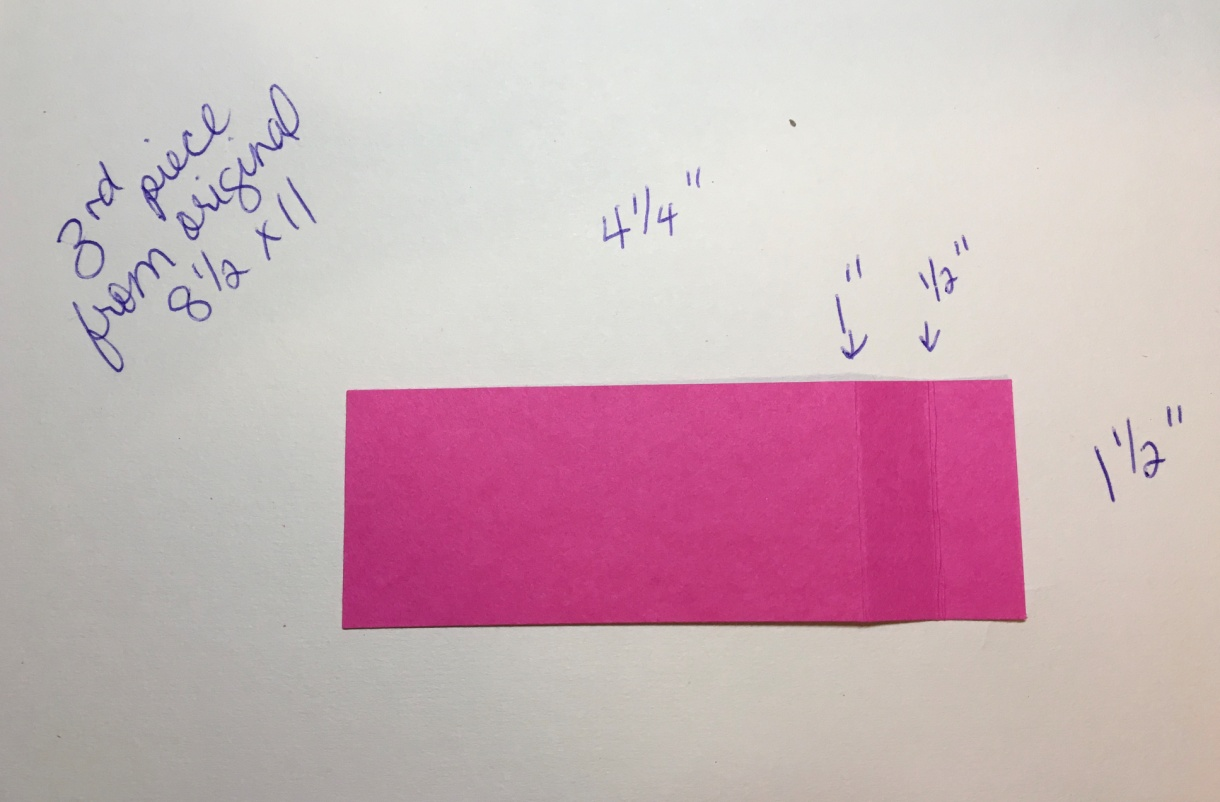 3rd piece
from original
8 1/2 x 11
4 1/4"
1"
1/2"
1 1/2"